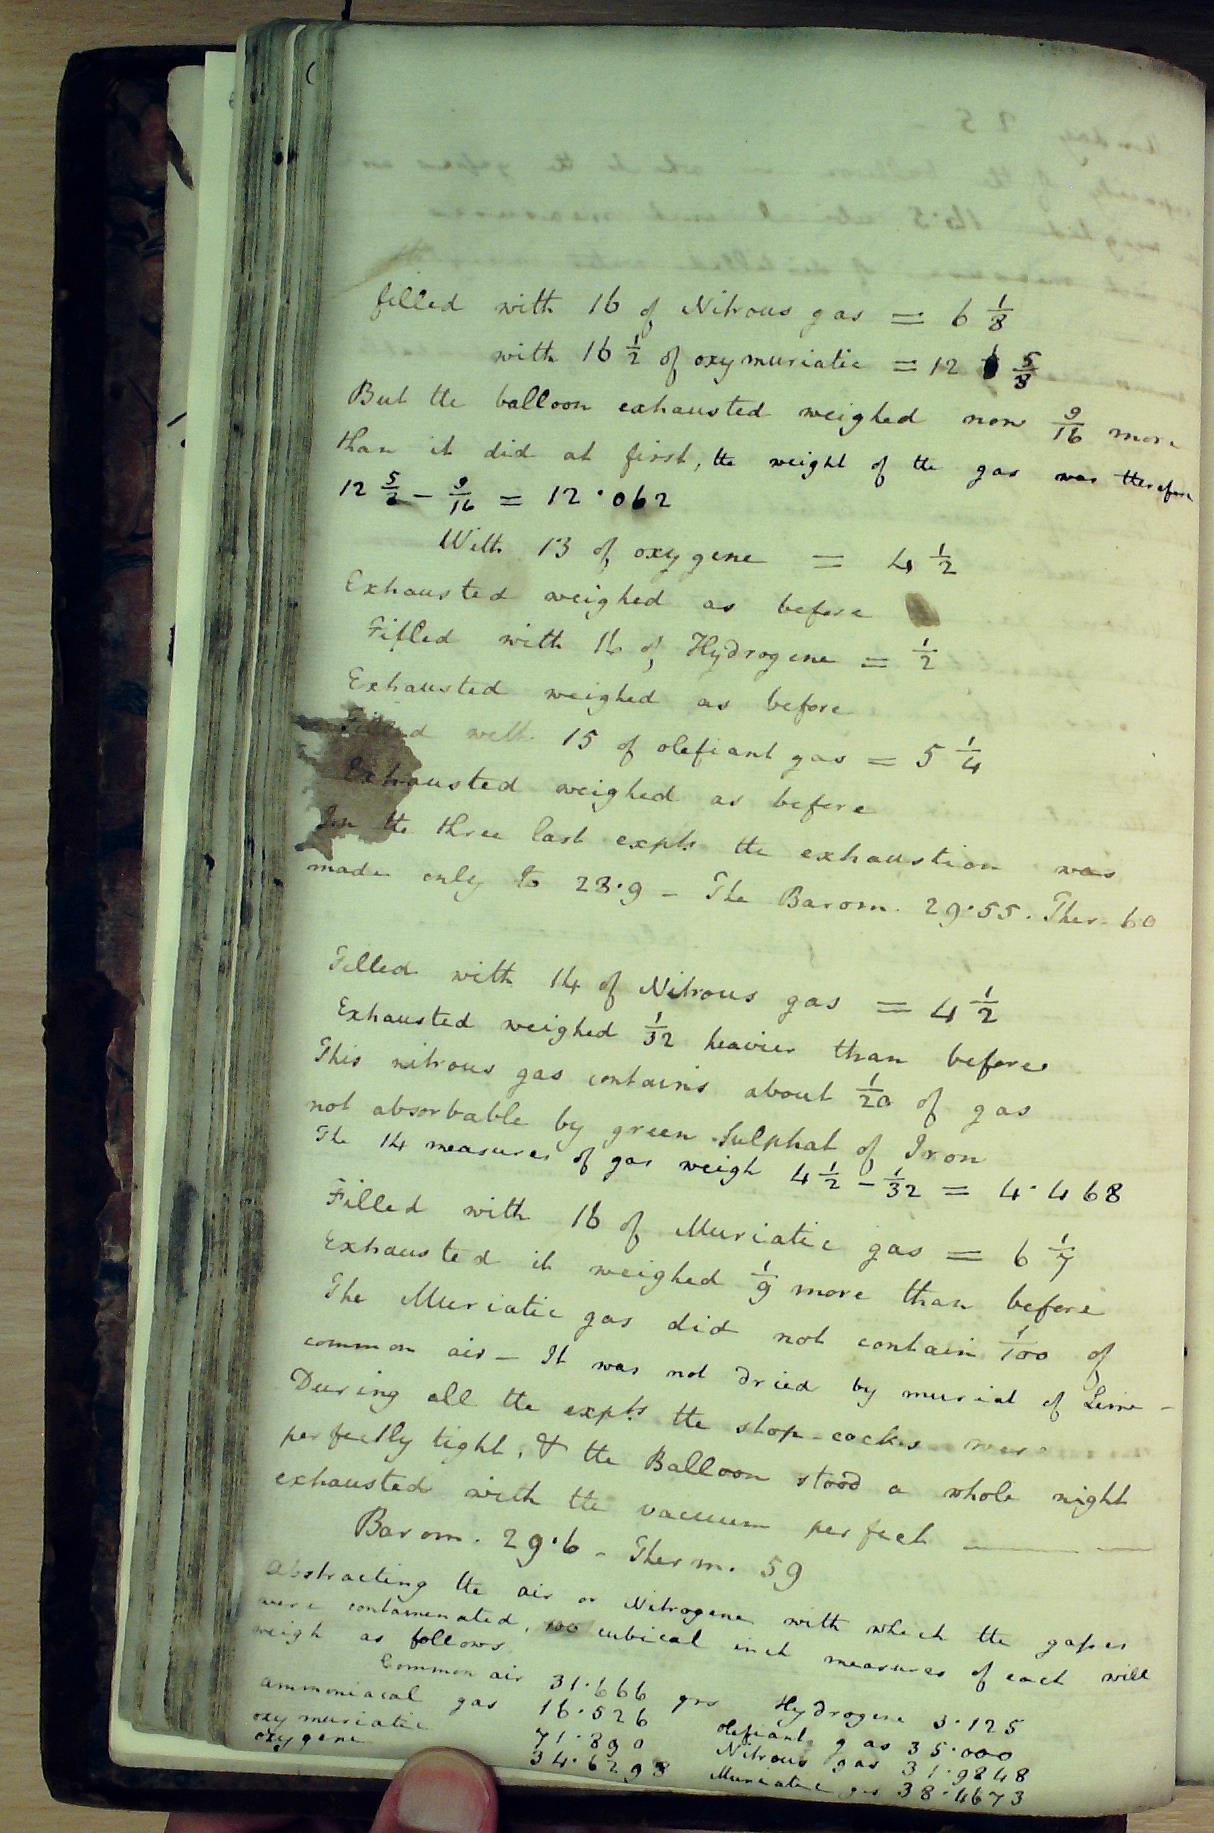 filled with 16 of Nitrous gas = 6 1/8
with 16 1/2 of oxymuriatic = 12 5/8
But the balloon exhausted weighed now 9/16 more
than it did at first, the weight of the gas was therefore
12 5/8 - 9/16 = 12.062
With 13 of oxygene = 4 1/2
Exhausted weighed as before
Filled with 16 of Hydrogene = 1/2
Exhausted weighed as before
Filled with 15 of olefiant gas = 5 1/4
Exhausted weighed as before
In the three last expts the exhaustion was
made only to 28.9 - The Barom. 29.55. Ther. 60
Filled with 14 of Nitrous gas = 4 1/2
Exhausted weighed 1/32 heavier than before
This nitrous gas contains about 1/20 of gas
not absorbable by green Sulphat of Iron
The 14 measures of gas weigh 4 1/2 - 1/32 = 4.468
Filled with 16 of Muriatic gas = 6 1/7
Exhausted it weighed 1/9 more than before
The Muriatic gas did not contain 1/100 of
common air - It was not dried by muriat of Lime -
During all the expts the stop-cocks were
perfectly tight, & the Balloon stood a whole night
exhausted with the vacuum perfect
Barom. 29.6 - Therm. 59
Abstracting the air or Nitrogene with which the gases
were contamenated, 100 cubical inch measures of each will
weigh as follows
Common air 31.666 grs Hydrogene 3.125
ammoniacal gas 16.526 olefiant gas 35.000
oxymuriatic 71.890 Nitrous gas 31.9848
oxygene 34.6298 Muriatic gas 38.4673